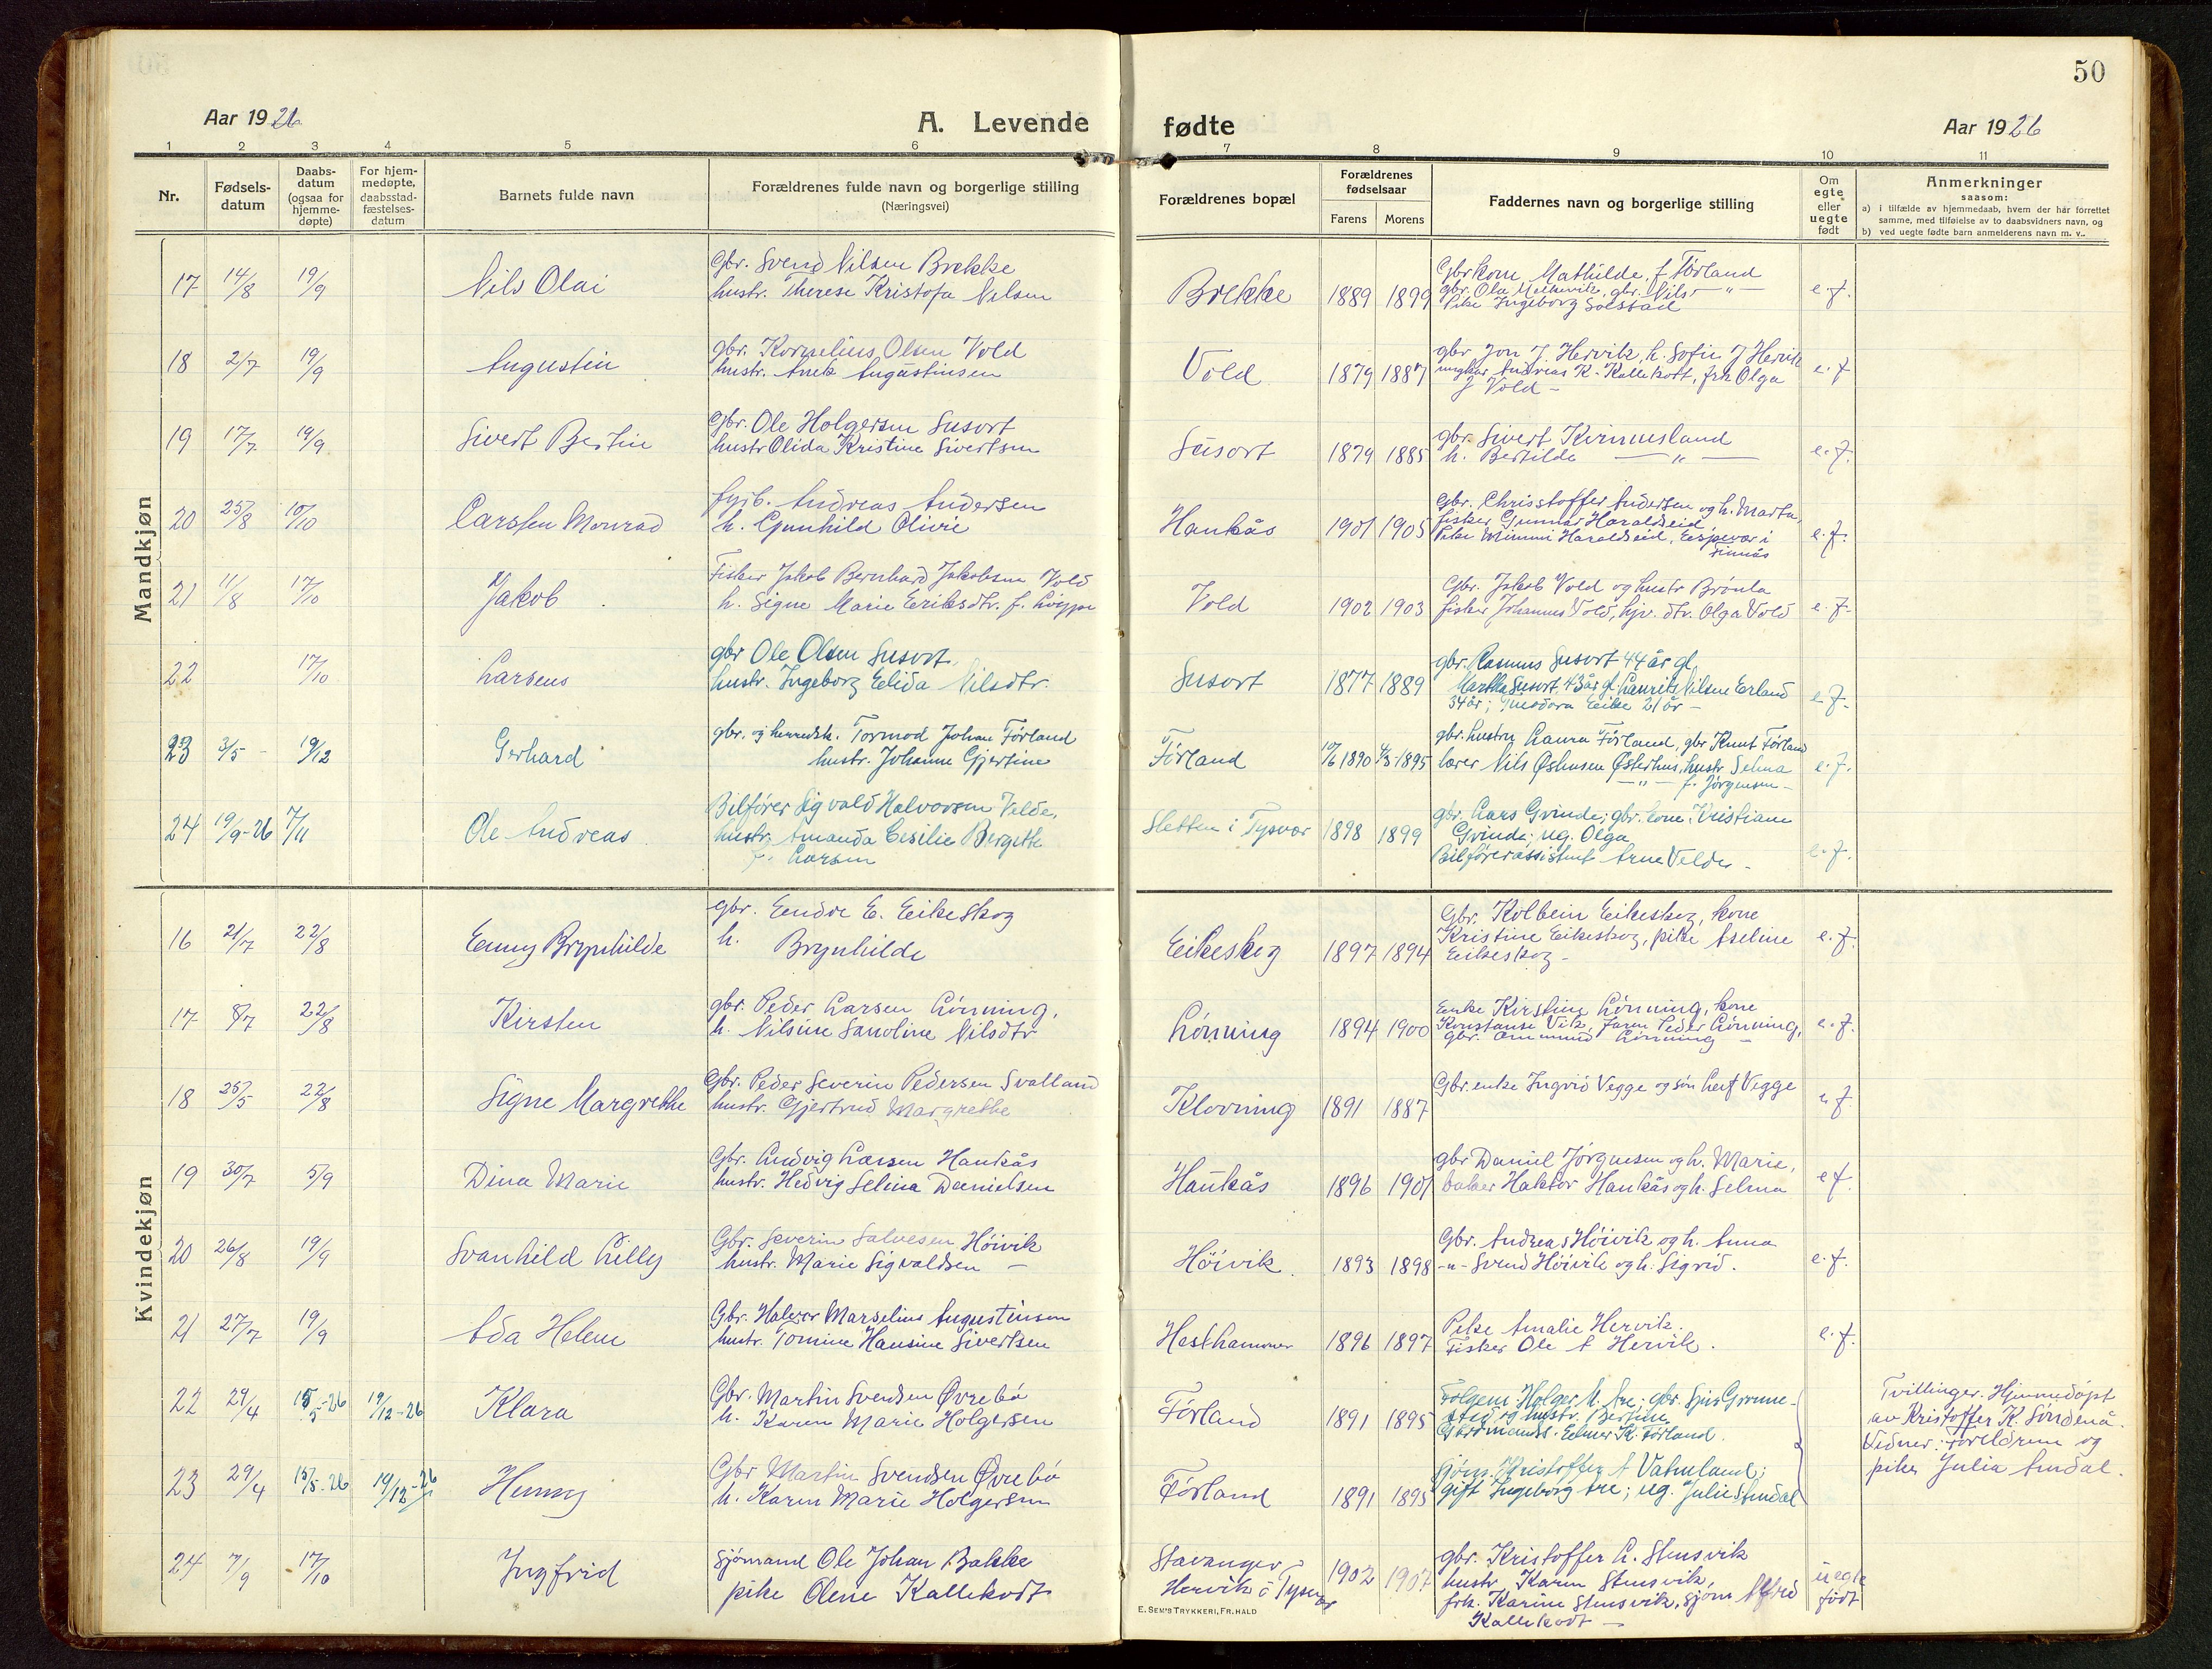 50
Aar 1926
A. Levende
fødte
Aar 1926
1 2 3 4 5 6 7 8 9 10 11
Nr.
Fødsels-
datum
Daabs-
datum
(ogsaa for
hjemme-
døpte)
For hjem-
medøpte,
daabsstad-
fæstelses-
datum
Barnets fulde navn
Forældrenes fulde navn og borgerlige stilling
(Næringsvei)
Forældrenes bopæl
Forældrenes
fødselsaar
Farens Morens
Faddernes navn og borgerlige stilling
Om
egte
eller
uegte
født
Anmerkninger
saasom:
a) i tilfælde av hjemmedaab, hvem der har forrettet
samme, med tilføielse av to daabsvidners navn, og
b) ved uegte fødte barn anmelderens navn m. v..
Mandkjøn
17 14/8 19/9 Nils Olai
Gbr. Svend Nilsen Brekke
hustr. Therese Kristofa Nilsen
Brekke 1889 1899
Gbrkone Mathilde, f Førland
gbr. Ola, gbr. Nils — " —
Pike Ingeborg Solstad
e.f.
18 2/7 19/9 Augustin
gbr. Kornelius Olsen Vold
hustr. Anek Augustinsen
Vold 1879 1887
gbr Jon J. Hervik, h. Sofie J Hervik
ungkar Andreas K. Kallekodt, frk Olga
J Vold -
e.f
19 17/7 19/9 Sivert Bertin
Gbr. Ole Holgersen Susort
hustr Olida Kristine Sivertsen
Susort 1879 1885
gbr. Sivert Kvinnesland
h. Bertilde — " —
e.f.
20 25/8 10/10 Carsten Monrad
fyrb. Andreas Andersen
h. Gunhild Olivie
Haukås 1901 1905
Gbr. Christoffer Andersen og h. Marta,
fisker Gunnar Haraldseid,
Pike Mimmi Haraldseid, Espevær i
Finnås
e.f.
21 11/8 17/10 Jakob
Fisker Jakob Bernhard Jakobsen Vold
h. Signe Marie Eriksdtr. f.
Vold 1902 1903
Gbr. Jakob Vold og hustr Brønla
fisker Johannes Vold, hjv. dtr. Olga Vold
e.f.
22 17/10 Larsens
gbr Ole Olsen Susort,
hustr. Ingeborg Elida Nilsdtr.
Susort 1877 1889
gbr. Rasmus Susort 44 år gl.
Martha Susort 43 år gl. Laurits Nilsen Erland
34 år; Eike 21 år -
e.f.
23 3/5 - 19/12 Gerhard
gbr. og herredsk. Tormod Johan Førland
hustr. Johanne Gjertine
Førland 10/6 1890 4/3-1895
gbr. hustru Laura Førland, gbr Knut Førland
lærer Nils Østerhus, hustr. Selma
— " — f. Jørgensen -
e.f.
24 19/9-26 7/11 Ole Andreas
Bilfører Sigvald Halvorsen Velde,
hustr. Amanda Cesilie Bergitte
f. Larsen
Sletten i Tysvær 1898 1899
gbr. Lars Grinde; gbr. kone Kristiane
Grinde; ug. Olga
Bilførerassistent Arne Velde -
e.f.
Kvindekjøn
16 21/7 22/8 Enny Brynhilde
gbr. Endre E. Eikeskog
h. Brynhilde
Eikeskog 1897 1894
Gbr. Kolbein Eikeskog, kone
Kristine Eikeskog, pike Aseline
Eikeskog -
e.f.
17 8/7 22/8 Kirsten
gbr. Peder Larsen Lønning,
h. Nilsine Sanoline Nilsdtr
Lønning 1894 1900
Enke Kirstine Lønning, kone
Konstanse Vik, faren Peder Lønning,
gbr. Ommund Lønning -
e.f.
18 25/5 22/8 Signe Margrethe
Gbr. Peder Severin Pedersen Svalland
hustr. Gjertrud Margrethe
Klovning 1891 1887
Gbr. enke Ingvid Vegge og søn Leif Vegge
e.f.
19 30/7 5/9 Dina Marie
Gbr. Ludvig Larsen Haukås
hustr. Hedvig Selina Danielsen
Haukås 1896 1901
gbr Daniel Jørgensen og h. Marie,
baker Haktor Haukås og h. Selma
e f.
20 26/8 19/9 Svanhild Lilly
Gbr. Severin Salvesen Høivik
hustr. Marie Sigvaldsen -
Høivik 1893 1898
Gbr. Andreas Høivik og h. Anna
-"- Svend Høivik og h. Sigrid.
e.f.
21 27/7 19/9 Ada Helene
Gbr. Halvor Marselius Augustinsen
hustr. Tomine Hansine Sivertsen
Hesthammer 1896 1897
Pike Amalie Hervik.
Fisker Ole A Hervik.
e.f.
22 29/4 15/5-26 19/12-26 Klara
Gbr. Martin Svendsen Øvrebø
h. Karen Marie Holgersen
Førland 1891 1895
Folgem. Holger M. Are; gbr. Sjur Grønne-
sted og hustr. Bertine
Gårdmands. Elmer K. Førland.
Tvillinger. Hjemmedøpt
av Kristoffer K. Søndenå.
Vidner: Foreldrene og
pike Julia Amdal.
23 29/4 15/5-26 19/12-26 Henny
Gbr Martin Svendsen Øvrebø
h. Karen Marie Holgersen
Førland 1891 1895
sjøm. Kristoffer A Vatneland;
gift Ingeborg Are; ug. Julie Amdal
24 7/9 17/10 Ingfrid
Sjømand Ole Johan Bakke
pike Olene Kallekodt
Stavanger
Hervik i Tysvær
1902 1907
gbr. Kristoffer A. Stensvik
hustr. Karen Stensvik,
frk. Karine Stensvik, sjøm Alfrid
Kallekodt -
uegte
født
E. SEM'S TRYKKERI, FR.HALD